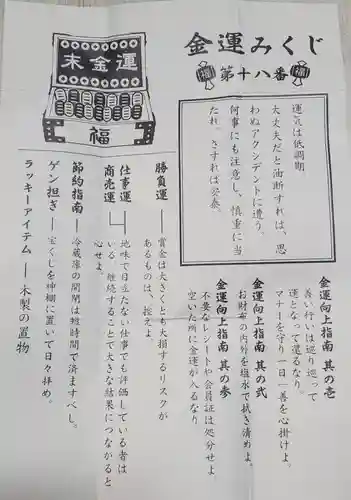 金運みくじ
福 第十八番 福
末金運
福
運気は低調期
大丈夫だと油断すれば、思
わぬアクシデントに遭う。
何事にも注意し、慎重に当
たれ。さすれば安泰
金運向上指南 其の壱
善い行いは巡り巡って
運となって還るなり。
マナーを守り一日一善を心掛けよ。
金運向上指南 其の弐
お財布の内外を塩水で拭き清めよ。
金運向上指南 其の参
不要なレシートや会員証は処分せよ
空いた所に金運が入るなり
勝負運 ― 賞金は大きくとも大損するリスクが
あるものは、控えよ
仕事運
商売運
地味で目立たない仕事でも評価している者は
いる。継続することで大きな結果につながると
心せよ。
節約指南 ― 冷蔵庫の開閉は短時間で済ますべし。
ゲン担ぎ ― 宝くじを神棚に置いて日々拝め。
ラッキーアイテム ― 木製の置物